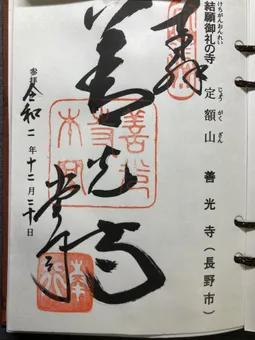 けちがんおんれい
結願御礼の寺
じょう がく ざん
定額山 善光寺(長野市)
奉
善光寺
参拝 令和二年十二月二十日